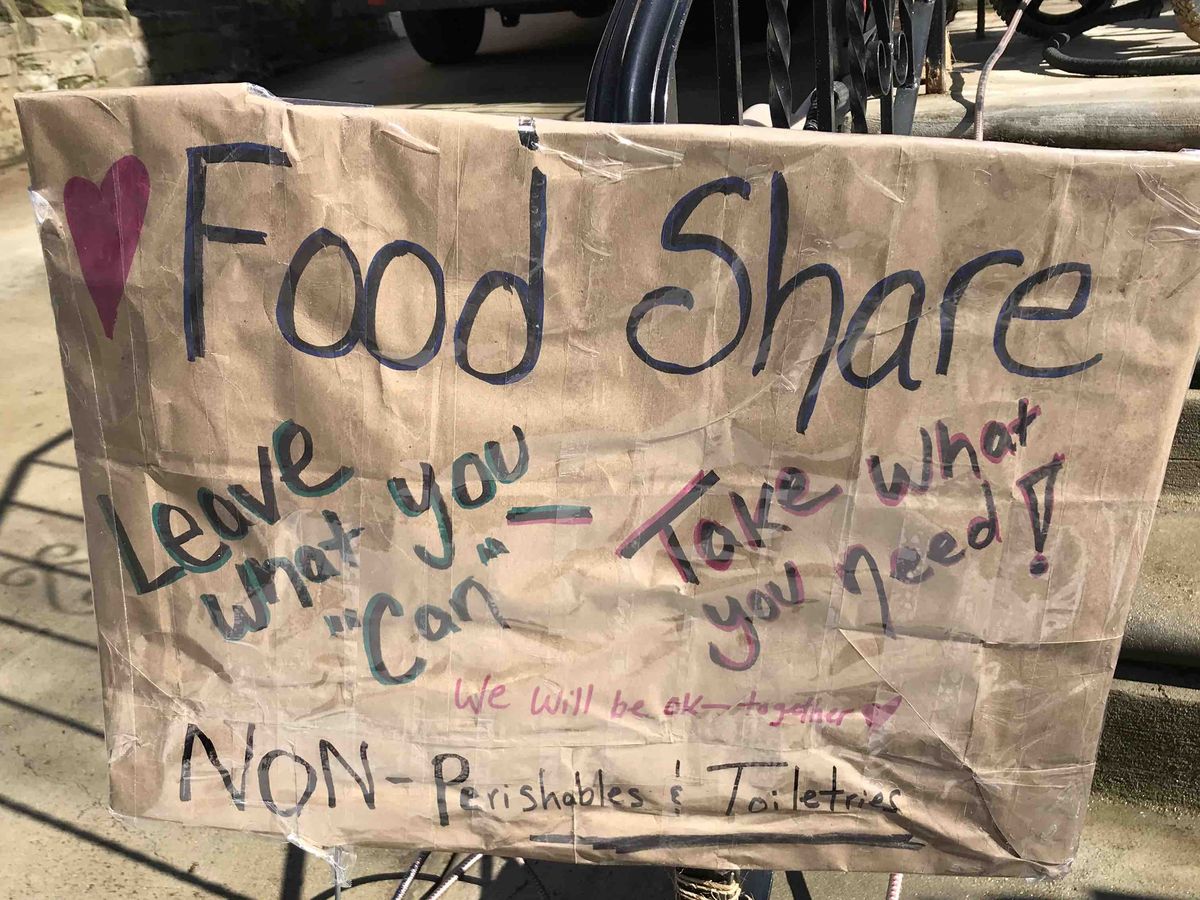 Food Share
Leave
what you
"Can" —
Take what
you need!
We will be ok—together
NON-Perishables & Toiletries